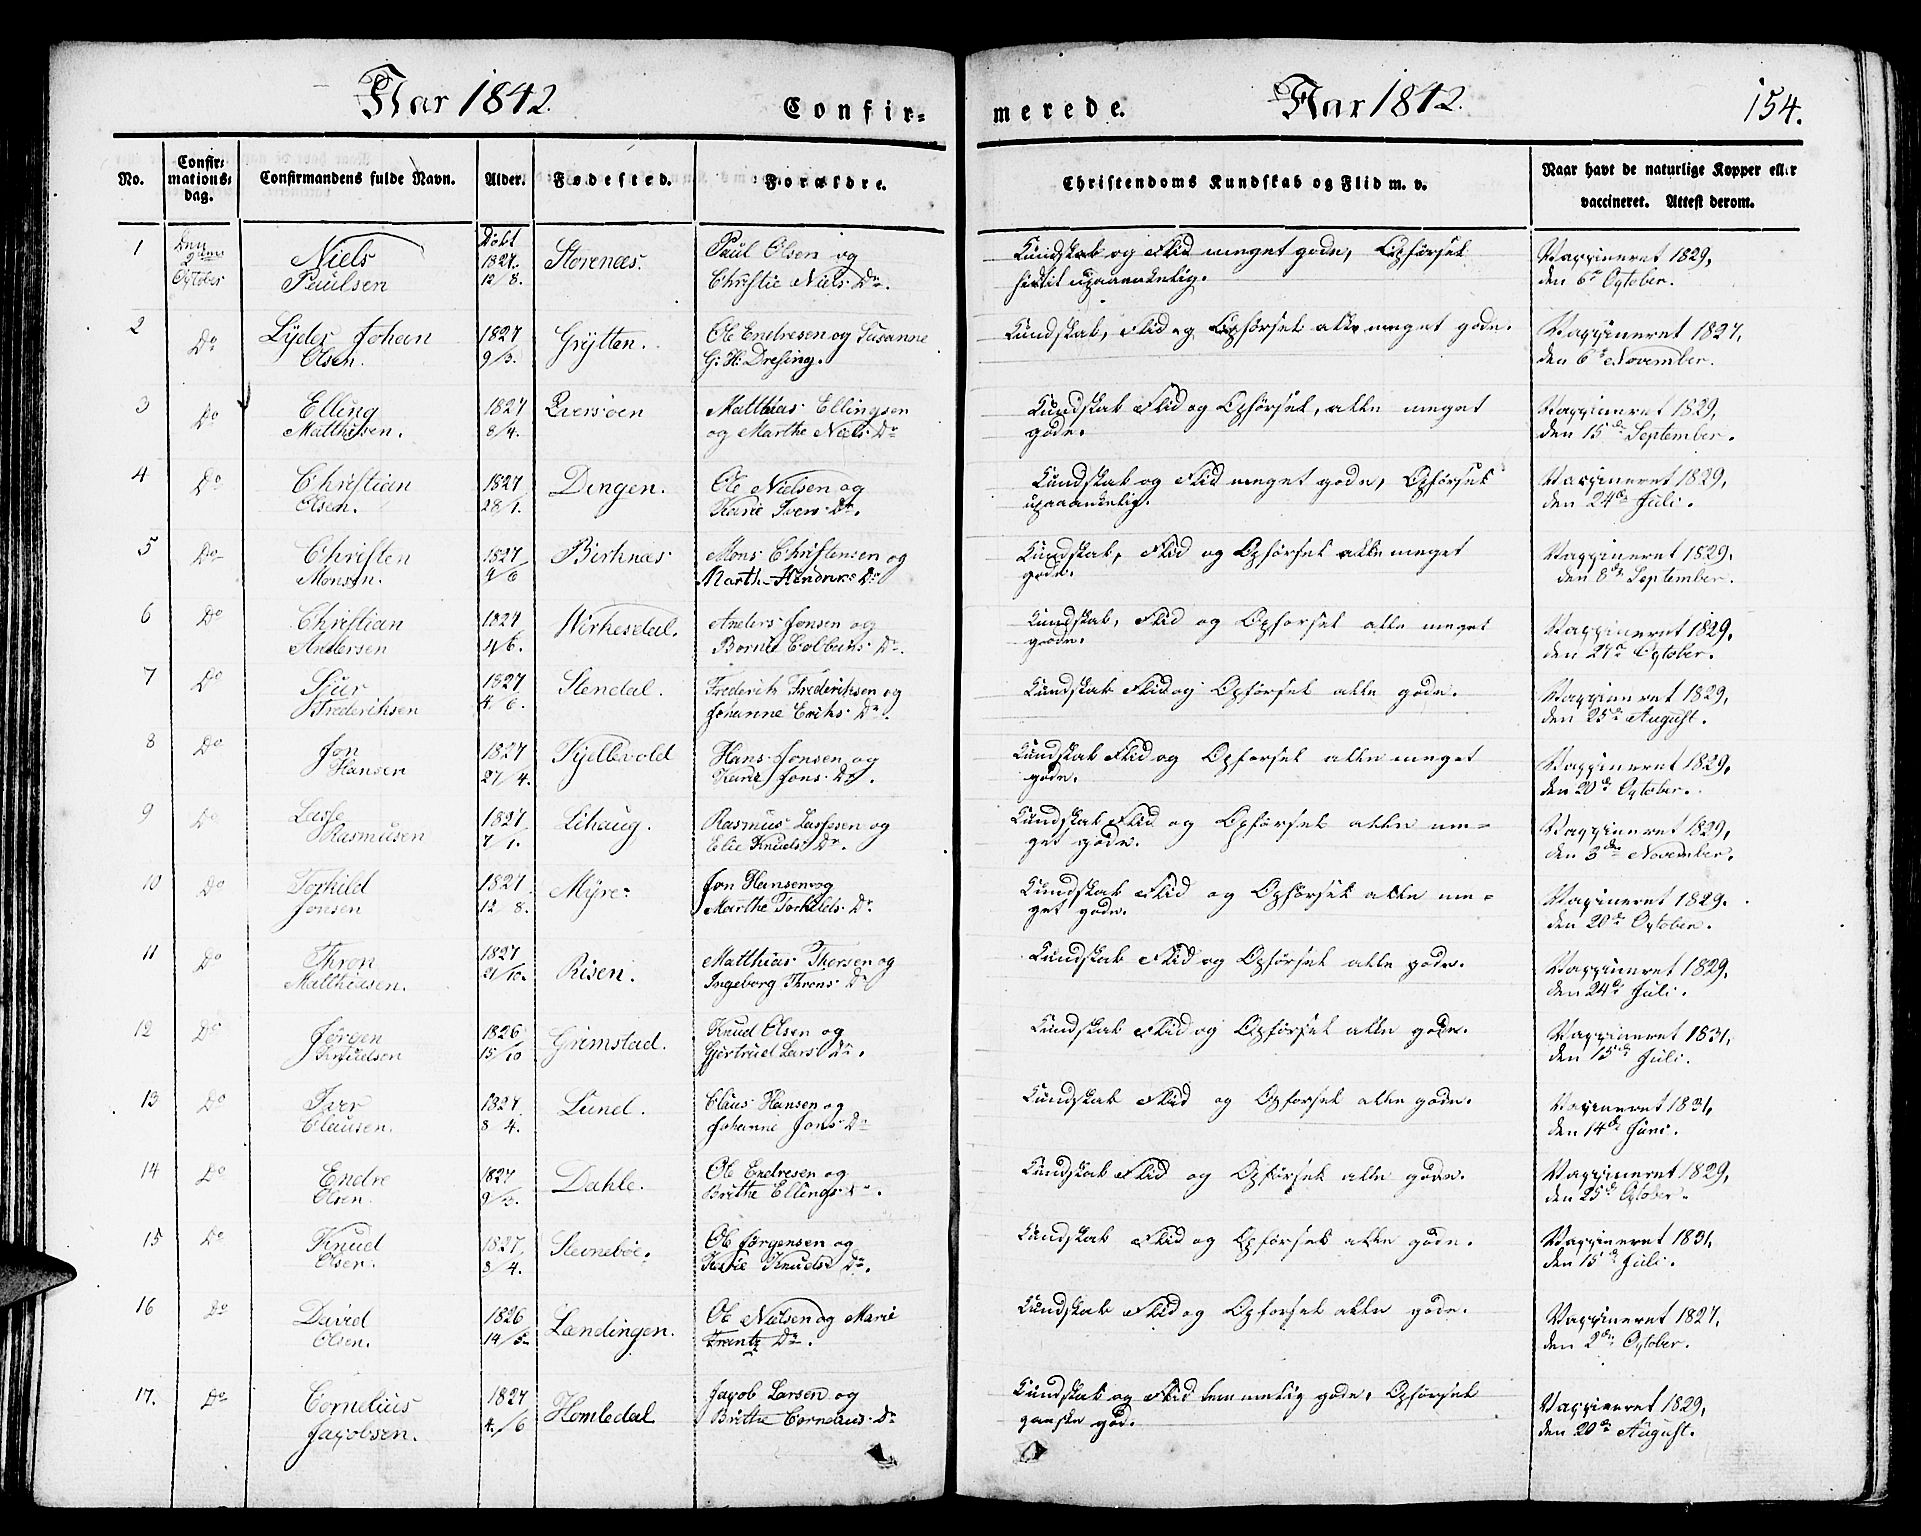 Aar 1842.
Confir-
merede.
Aar 1842.
154.
No.
Confir-
mations-
dag.
Confirmandens fulde Navn.
Alder.
Fødested.
Forældre.
Christendoms Kundskab og Flid m. v.
Naar havt de naturlige Kopper eller
vaccineret. Attest derom.
1
Den
October
Niels
Paulsen
Døbt
1827.
12/8.
Storenæs.
Paul Olsen og
Christie Niels Dr.
Kundskab og Flid meget gode, Opførsel
hidtil upaaankelig.
Vaccineret 1829,
den 6te October.
2
Do
Lyder Johan
Olsen.
1827
9/3.
Grytten.
Ole Endresen og Susanne
G: H: Dresing.
Kundskab, Flid og Opførsel alle meget gode.
Vaccineret 1827,
den 6te November.
3
Do
Elling
Matthisen.
1827
8/4.
Qversøen
Matthias Ellingsen
og Marthe Niels Dr
Kundskab Flid og Opførsel, alle meget
gode.
Vaccineret 1829,
den 15de September.
4
Do
Christian
Olsen.
1827
28/1.
Dingen.
Ole Nielsen og
Karie Ivers Dr.
Kundskab og Flid meget gode, Opførsel
upaaankelig.
Vaccineret 1829,
den 24de Juli.
5
Do
Christen
Monsen.
1827
4/6
Birknæs
Mons Christensen og
Marthe Hendriks Dr
Kundskab, Flid og Opførsel alle meget
gode.
Vaccineret 1829.
den 8de September.
6
Do
Christian
Andersen
1827
4/6.
Wirkesdal.
Anders Jonsen og
Kundskab, Flid og Opførsel alle meget
gode.
Vaccineret 1829,
den 27de October.
7
Do
Sjur
Frederiksen
1827
4/6.
Stendal.
Frederik Frederiksen og
Johanne Eriks Dr.
Kundskab Flid og Opførsel alle gode.
Vaccineret 1829,
den 25de August.
8
Do
Jon
Hansen
1827
27/4.
Kjellevold
Hans Jonsen og
Karie Jons Dr.
Kundskab Flid og Opførsel alle meget
gode.
Vaccineret 1829,
den 20de October.
9
Do
Lasse
Rasmusen
1827
7/1.
Lihaug.
Rasmus Lassesen og
Elie Knuds Dr.
Kundskab Flid og Opførsel alle me-
get gode.
Vaccineret 1829,
den 3die November.
10
Do
Torkild
Jonsen
1827
12/8.
Myre
Jon Hansen og
Marthe Torkilds Dr.
Kundskab Flid og Opførsel alle me-
get gode.
Vaccineret 1829.
den 20de October.
11
Do
Thron
Matthiasen.
1827
21/10.
Risen.
Matthias Thorsen og
Ingeborg Throns Dr
Kundskab Flid og Opførsel alle gode.
Vaccineret 1829,
den 24de Juli.
12
Do
Jørgen
Knudsen
1826
15/10
Grimstad.
Knud Olsen og
Gjertrud Lars Dr.
Kundskab Flid og Opførsel alle gode.
Vaccineret 1831,
den 15de Juli.
13
Do
Iver
Clausen.
1827.
8/4.
Lund.
Claus Hansen og
Johanne Jons Dr
Kundskab Flid og Opførsel alle gode.
Vaccineret 1831,
den 14de Juni.
14
Do
Endre
Olsen.
1827
9/3.
Dahle.
Ole Endresen og
Brithe Ellings Dr.
Kundskab Flid og Opførsel alle gode.
Vaccineret 1829,
den 25de October.
15
Do
Knud
Olsen.
1827,
8/4.
Steenebøe.
Ole Jørgensen og
Karie Knuds Dr.
Kundskab Flid og Opførsel alle gode.
Vaccineret 1831,
den 15de Juli.
16
Do
David
Olsen.
1826
14/5
Lændingen.
Ole Nielsen og Marie
Frantz Dr.
Kundskab Flid og Opførsel alle gode.
Vaccineret 1827,
den 2den October.
17.
Do
Cornelius
Jacobsen.
1827
4/6
Homledal
Jacob Larsen og
Brithe Cornelius Dr
Kundskab og Flid temmelig gode, Opførsel
ganske god.
Vaccineret 1829,
den 20de August.